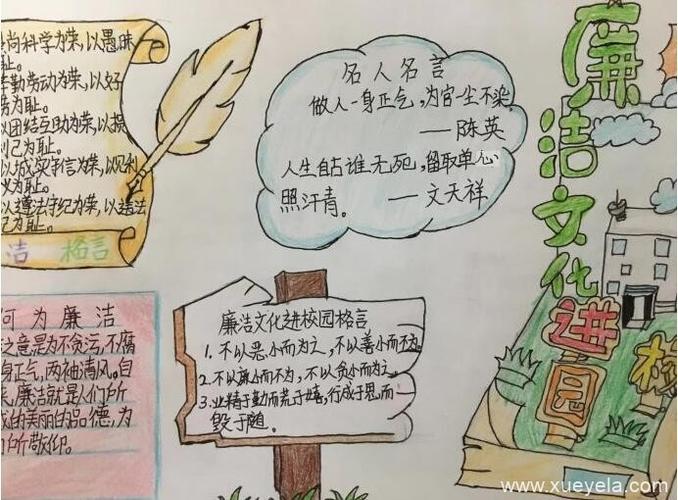 尚科学为荣,以愚昧
耻。
勤劳动为荣,以好
劳为耻。
以团结互助为荣,以损
利己为耻。
以诚实守信为荣,以见利
义为耻。
以遵法守纪为荣,以违法
纪为耻。
洁 格言
名人名言
做人一身正气,为官一尘不染
——陈英
人生自古谁无死,留取单心
照汗青。 ——文天祥
廉洁文化进校园
何为廉洁
之意是为不贪污,不腐
身正气,两袖清风。自
廉洁就是人们所
成的美丽的品德,为
所敬仰。
廉洁文化进校园格言
1.不以恶小而为之,不以善小而不为。
2.不以廉小而不为,不以贪小而为之。
3.业精于勤而荒于嬉,行成于思而
毁于随。
www.xueyela.com